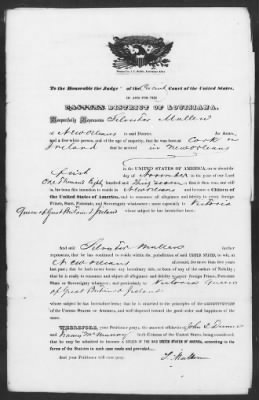 To the Honorable the Judge of the Circuit Court of the United States,
IN AND FOR THE
EASTERN DISTRICT OF LOUISIANA.
Respectfully Represents Silvester Mullen
of New Orleans in said District,
and a free white person, and of the age of majority, that he was born at Cork in
Ireland that he arrived in New Orleans
in the UNITED STATES OF AMERICA, on or about the
day of November in the year of our Lord
One Thousand Eight hundred and
to become a Citizen
of the United States of America, and to renounce all allegiance and fidelity to every foreign
Prince, State, Potentate, and Sovereignty whatsoever: more especially to Victoria
Queen of Great Britain & Ireland whose subject he has heretofore been.
And said Silvester Mullen further
represents, that he has continued to reside within the jurisdiction of SAID UNITED STATES, to wit, at
New Orleans allowed, for more than five years
last past; that he hath never borne any hereditary title, or been of any of the orders of Nobility; that
he is ready to renounce and abjure all allegiance and fidelity to every foreign Prince, Potentate,
State or Sovereignty whatever, and particularly to Victoria Queen
of Great Britain & Ireland
whose subject he has heretofore been; that he is attached to the principles of the CONSTITUTION OF
THE UNITED STATES OF AMERICA, and well disposed toward the good order and happiness of
the same.
WHEREFORE, your Petitioner prays, the annexed affidavits of John
and Francis both Citizens of the United States, being considered,
that he may be admitted to become a CITIZEN OF THE SAID UNITED STATES OF AMERICA, according to
the forms of the Statutes in such case made and provided.
S. Mullen